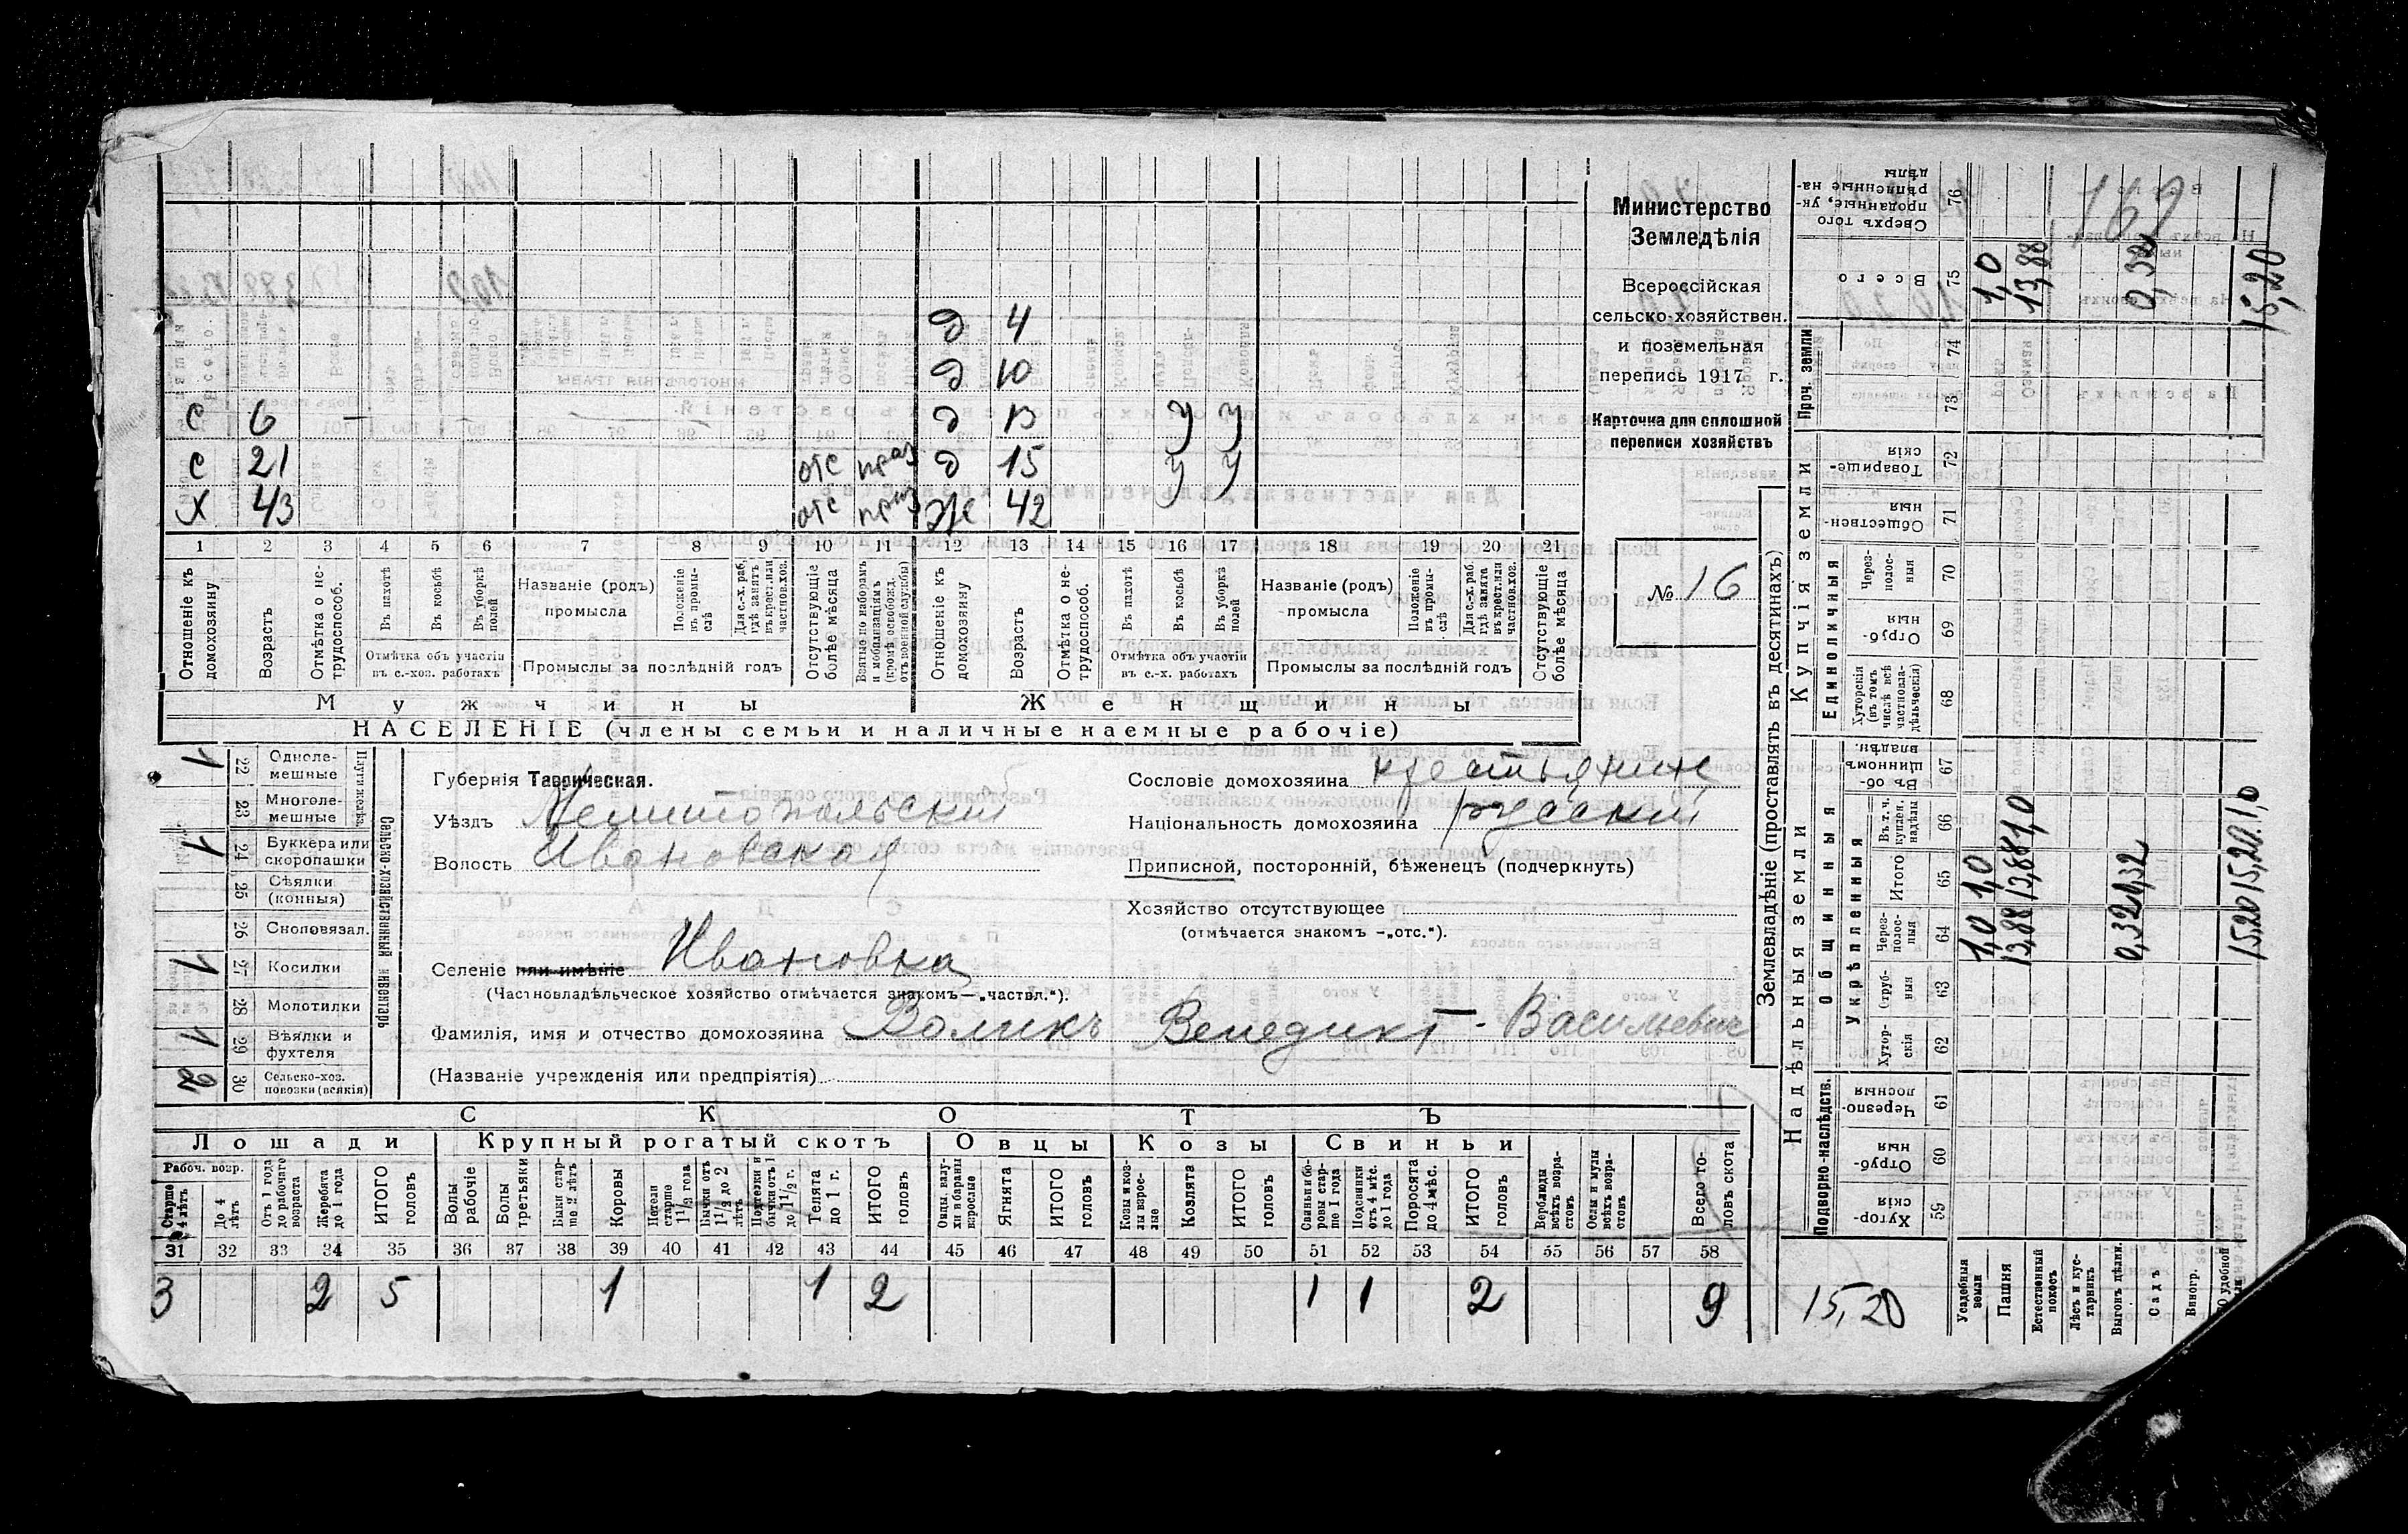 Министерство
Земледѣлія
Всероссійская
сельско-хозяйствен.
и поземельная
перепись 1917 г.
Карточка для сплошной
переписи хозяйствъ
№ 16
169
д 4
д 10
С 6 — д 13 У У
С 21 отс праз д 15 У У
Х 43 отс приз Же 42
1 2 3 4 5 6 7 8 9 10 11 12 13 14 15 16 17 18 19 20 21
Отношеніе къ домохозяину
Возрастъ
Отмѣтка о не-трудоспособ.
Въ пахотѣ
Въ косьбѣ
Въ уборкѣ полей
Отмѣтка объ участіи въ с.-хоз. работахъ
Названіе (родъ) промысла
Положеніе въ промы-слѣ
Для с.-х. раб. гдѣ занятъ въ крест. или частнов. хоз.
Промыслы за послѣдній годъ
Отсутствующіе болѣе мѣсяца
Взятые по наборамъ и мобилизаціямъ (кромѣ освобожд. отъ военной службы)
Отношеніе къ домохозяину
Возрастъ
Отмѣтка о не-трудоспособ.
Въ пахотѣ
Въ косьбѣ
Въ уборкѣ полей
Отмѣтка объ участіи въ с.-х. работахъ
Названіе (родъ) промысла
Положеніе въ промы-слѣ
Для с.-х. раб. гдѣ занята въ крест. или частнов. хоз.
Промыслы за послѣдній годъ
Отсутствующіе болѣе мѣсяца
Мужчины Женщины
НАСЕЛЕНІЕ (члены семьи и наличные наемные рабочіе)
Сельско-хозяйственный инвентарь
Плуги желѣз.
1 22 Однолемешные
23 Многолемешные
1 24 Буккера или скоропашки
25 Сѣялки (конныя)
26 Сноповязал.
1 27 Косилки
28 Молотилки
1 29 Вѣялки и фухтеля
2 30 Сельско-хоз. повозки (всякія)
Губернія Таврическая.
Уѣздъ Мелитопольскій
Волость Ивановская
Селеніе или имѣніе Ивановка
(Частновладѣльческое хозяйство отмѣчается знакомъ—„частвл.“).
Фамилія, имя и отчество домохозяина Воликъ Венедиктъ Васильевич
(Названіе учрежденія или предпріятія)
Сословіе домохозяина крестьянин
Національность домохозяина русскій
Приписной, посторонній, бѣженецъ (подчеркнуть)
Хозяйство отсутствующее
(отмѣчается знакомъ —„отс.“).
СКОТЪ
Лошади Крупный рогатый скотъ Овцы Козы Свиньи
Рабоч. возр.
Старше 4 лѣтъ
До 4 лѣтъ
Отъ 1 года до рабочаго возраста
Жеребята до 1 года
ИТОГО головъ
Волы рабочіе
Волы третьяки
Быки старше 2 лѣтъ
Коровы
Нетели старше 1½ года
Бычки отъ 1½ до 2 лѣтъ
Подтелки и бычки отъ 1 до 1½ г.
Телята до 1 г.
ИТОГО головъ
Овцы, валухи и бараны взрослые
Ягнята
ИТОГО головъ
Козы и козлы взрослые
Козлята
ИТОГО головъ
Свиньи и боровы старше 1 года
Подсвинки отъ 4 мѣс. до 1 года
Поросята до 4 мѣс.
ИТОГО головъ
Верблюды всѣхъ возрастовъ
Ослы и мулы всѣхъ возрастовъ
Всего головъ скота
31 32 33 34 35 36 37 38 39 40 41 42 43 44 45 46 47 48 49 50 51 52 53 54 55 56 57 58
3 2 5 1 1 2 1 1 2 9
Землевладѣніе (проставлять въ десятинахъ)
76 Сверхъ того проданные, укрѣпленные надѣлы
75 Всего 1,0 13,88 0,32 15,20
Проч. земли
74
73
Купчія земли
72 Товарищескія
71 Общественныя
Единоличныя
70 Черезполосныя
69 Отрубныя
68 Хуторскія (въ томъ числѣ всѣ частновладѣльческія)
Надѣльныя земли
Общинныя
67 Въ общинномъ владѣн.
Укрѣпленныя
66 Въ т. ч. куплен. надѣлы 1,0 1,0
65 Итого 1,0 13,88 0,32 15,20
64 Черезполосныя 1,0 13,88 0,32 15,20
63 Отрубныя
62 Хуторскія
Подворно-наслѣдств.
61 Черезполосныя
60 Отрубныя
59 Хуторскія
15,20
Усадебныя земли
Пашня
Естественный покосъ
Лѣсъ и кустарникъ
Выгонъ дѣлимый
Садъ
Виногр.